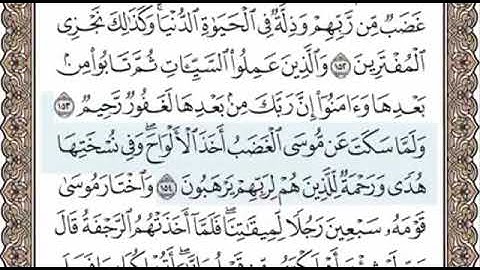 غَضَبٌ مِّن رَّبِّهِمْ وَذِلَّةٌ فِى ٱلْحَيَوٰةِ ٱلدُّنْيَا ۚ وَكَذَٰلِكَ نَجْزِى
ٱلْمُفْتَرِينَ ١٥٢ وَٱلَّذِينَ عَمِلُوا۟ ٱلسَّيِّـَٔاتِ ثُمَّ تَابُوا۟ مِنۢ
بَعْدِهَا وَءَامَنُوٓا۟ إِنَّ رَبَّكَ مِنۢ بَعْدِهَا لَغَفُورٌ رَّحِيمٌ ١٥٣
وَلَمَّا سَكَتَ عَن مُّوسَى ٱلْغَضَبُ أَخَذَ ٱلْأَلْوَاحَ ۖ وَفِى نُسْخَتِهَا
هُدًى وَرَحْمَةٌ لِّلَّذِينَ هُمْ لِرَبِّهِمْ يَرْهَبُونَ ١٥٤ وَٱخْتَارَ مُوسَىٰ
قَوْمَهُۥ سَبْعِينَ رَجُلًا لِّمِيقَٰتِنَا ۖ فَلَمَّآ أَخَذَتْهُمُ ٱلرَّجْفَةُ قَالَ